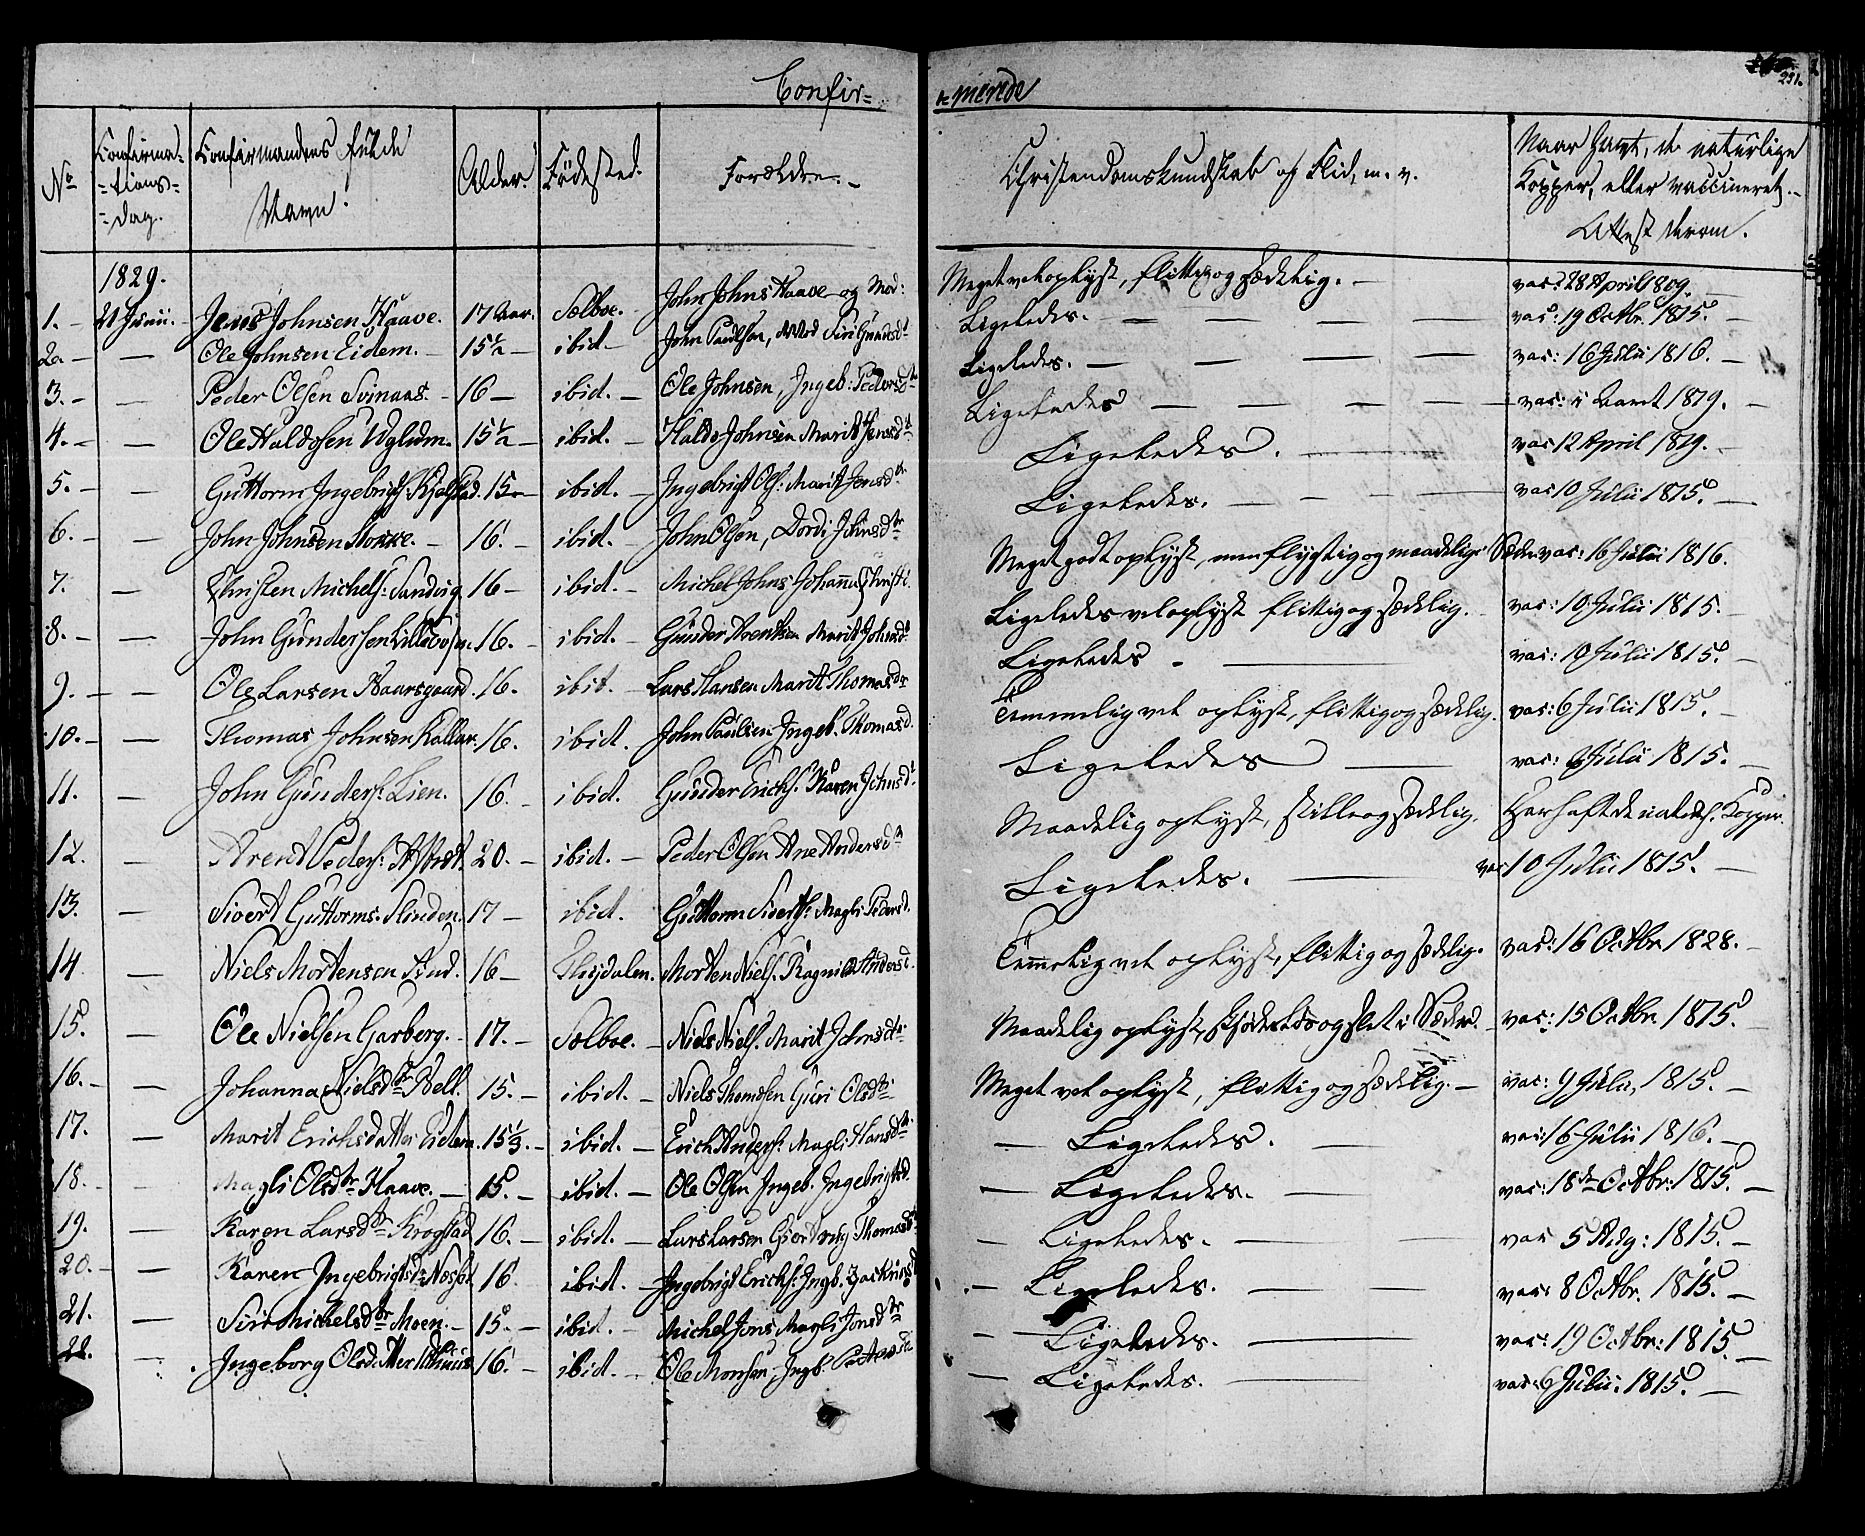 Confir=
=merede
291.
No
Confirma-
=tions=
=dag.
Confirmandens fulde
Navn.
Alder.
Födested.
Forældre.
Christendomskundskab og Flid, m. v.
Naar havt, de naturlige
Kopper, eller vaccineret.
Attest derom.
1829.
1. 21 Junii. Jens Johnsen Haave. 17 Aar. Sælboe. John Johns Haave og Mod: Meget vel oplyst, flittig og sædelig. vac: 28 April 1809.
2. Ole Johnsen Eidem. 15½ ibid. John Paulsen, Siri Ligeledes. vac: 19 Octbr. 1815.
3. Peder Olsen Svinaas. 16 ibid. Ole Johnsen, Ingeb: Pedersd. Ligeledes. vac: 16 Julii 1816.
4. Ole Haldosen Uglum. 15½ ibid. Haldo Johnsen Marit Jensd. Ligeledes vac: i 1819.
5. Guttorm Ingebrigts. Kjelstad. 15 ibid. Ingebrigt Ols: Marit Jensd. Ligeledes. vac 12 April 1819.
6. John Johnsen Stokke. 16. ibid. John Olsen, Dordi Johnsdtr Ligeledes. vac 10 Julii 1815.
7. Christen Michels: Sandvig 16 ibid. Michel Johns Johanna Christ: Meget godt oplyst, men flygtig og maadelig Sæder. vac: 16 Julii 1816.
8. John Gundersen Lillevolden. 16. ibid. Gunder Arentsen Marit Johnsd. Ligeledes vel oplyst flittig og sædelig. vac: 10 Julii 1815.
9. Ole Larsen Kaarsgaard. 16. ibid. Lars Hansen Marit Thomasdr Ligeledes vac: 10 Julii 1815.
10. Thomas Johnsen Kallar. 16. ibid. John Paulsen Ingeb. Thomasd. Temmelig vel oplyst, flittig og sædelig. vac: 6 Julii 1815.
11. John Gunders: Lien. 16. ibid. Gunder Erichs. Karen Johnsd. Ligeledes vac: 6 Julii 1815.
12. Arent Peders: Aftret 20. ibid. Peder Olsen Ane Andersd. Maadelig oplyst, stille og sædelig. Har haft de naturl. Kopper.
13. Sivert Guttorms. Slinden. 17 ibid. Guttorm Siverts: Magli Pedersd. Ligeledes. vac 10 Julii 1815.
14 Niels Mortensen Aud. 16 Thydalen. Morten Niels. Ragnild Andersd. Temmelig vel oplyst, flittig og sædelig. vac: 16 Octbr. 1828.
15. Ole Nielsen Garberg. 17. Sælboe. Niels Niels. Marit Johnsdtr. Maadelig oplyst, skjödeslös og slet i Sæder. vac: 15 Octbr. 1815.
16. Johanna Nielsdtr Bell. 15. ibid. Niels Thomesen Guri Olsdtr. Meget vel oplyst, flittig og sædelig. vac: 9 Julii, 1815.
17. Marit Erichsdatter Eidem. 15⅓. ibid. Erich Anders: Magli Hansdtr. Ligeledes. vac: 16 Julii 1816.
18. Magli Olsdtr Haave. 15. ibid. Ole Olsen Ingeb. Ingebrigtsd. Ligeledes. vac: 18de Octbr: 1815.
19. Karen Larsdtr Krogstad 16. ibid. Lars Larsen Giertrug Thomasd. Ligeledes. vac 5 Aug: 1815.
20. Karen Ingebrigtsd: Næsset 16 ibid. Ingebrigt Erichs: Ingb. Zachrisd Ligeledes. vac: 8 Octbr. 1815.
21. Siri Michelsdtr Moen. 15. ibid. Michel Jons Magli Jonsdtr Ligeledes. vac: 19 Octbr: 1815.
22. Ingeborg Olsdatter 16. ibid. Ole Monsen, Ingb. Ligeledes. vac: 6 Julii. 1815.